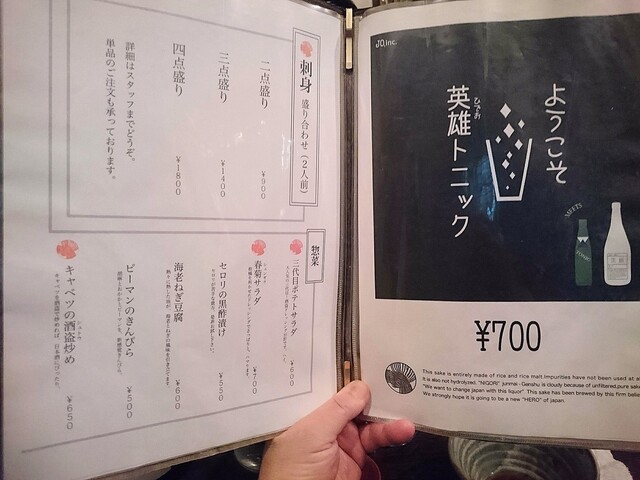 刺身 盛り合わせ（2人前）
二点盛り ¥900
三点盛り ¥1400
四点盛り ¥1800
詳細はスタッフまでどうぞ。
単品のご注文も承っております。
惣菜
三代目ポテトサラダ ¥600
春菊サラダ ¥700
セロリの黒酢漬け ¥550
海老ねぎ豆腐 ¥600
ピーマンのきんぴら ¥500
キャベツの酒盗炒め ¥650
JO,inc.
ようこそ
英雄トニック
ひでお
MEETS
TONIC
¥700
This sake is entirely made of rice and rice malt Impurities have not been used at
It is also not hydrolyzed. "NIGORI" junmai - Genshu is cloudy because of unfiltered.pure sake
"We want to change japan with this liquor" This sake has been brewed by this firm belief
We strongly hope it is going to be a new "HERO" of japan.